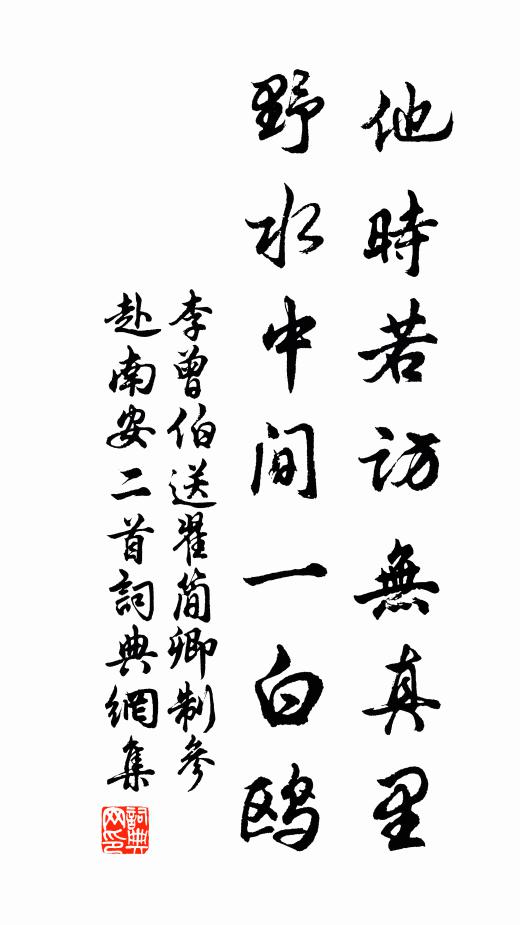 他時若訪無真里
野水中間一白鷗
李曾伯送翟簡卿制參
赴南安二首詞典網集
詞典網印